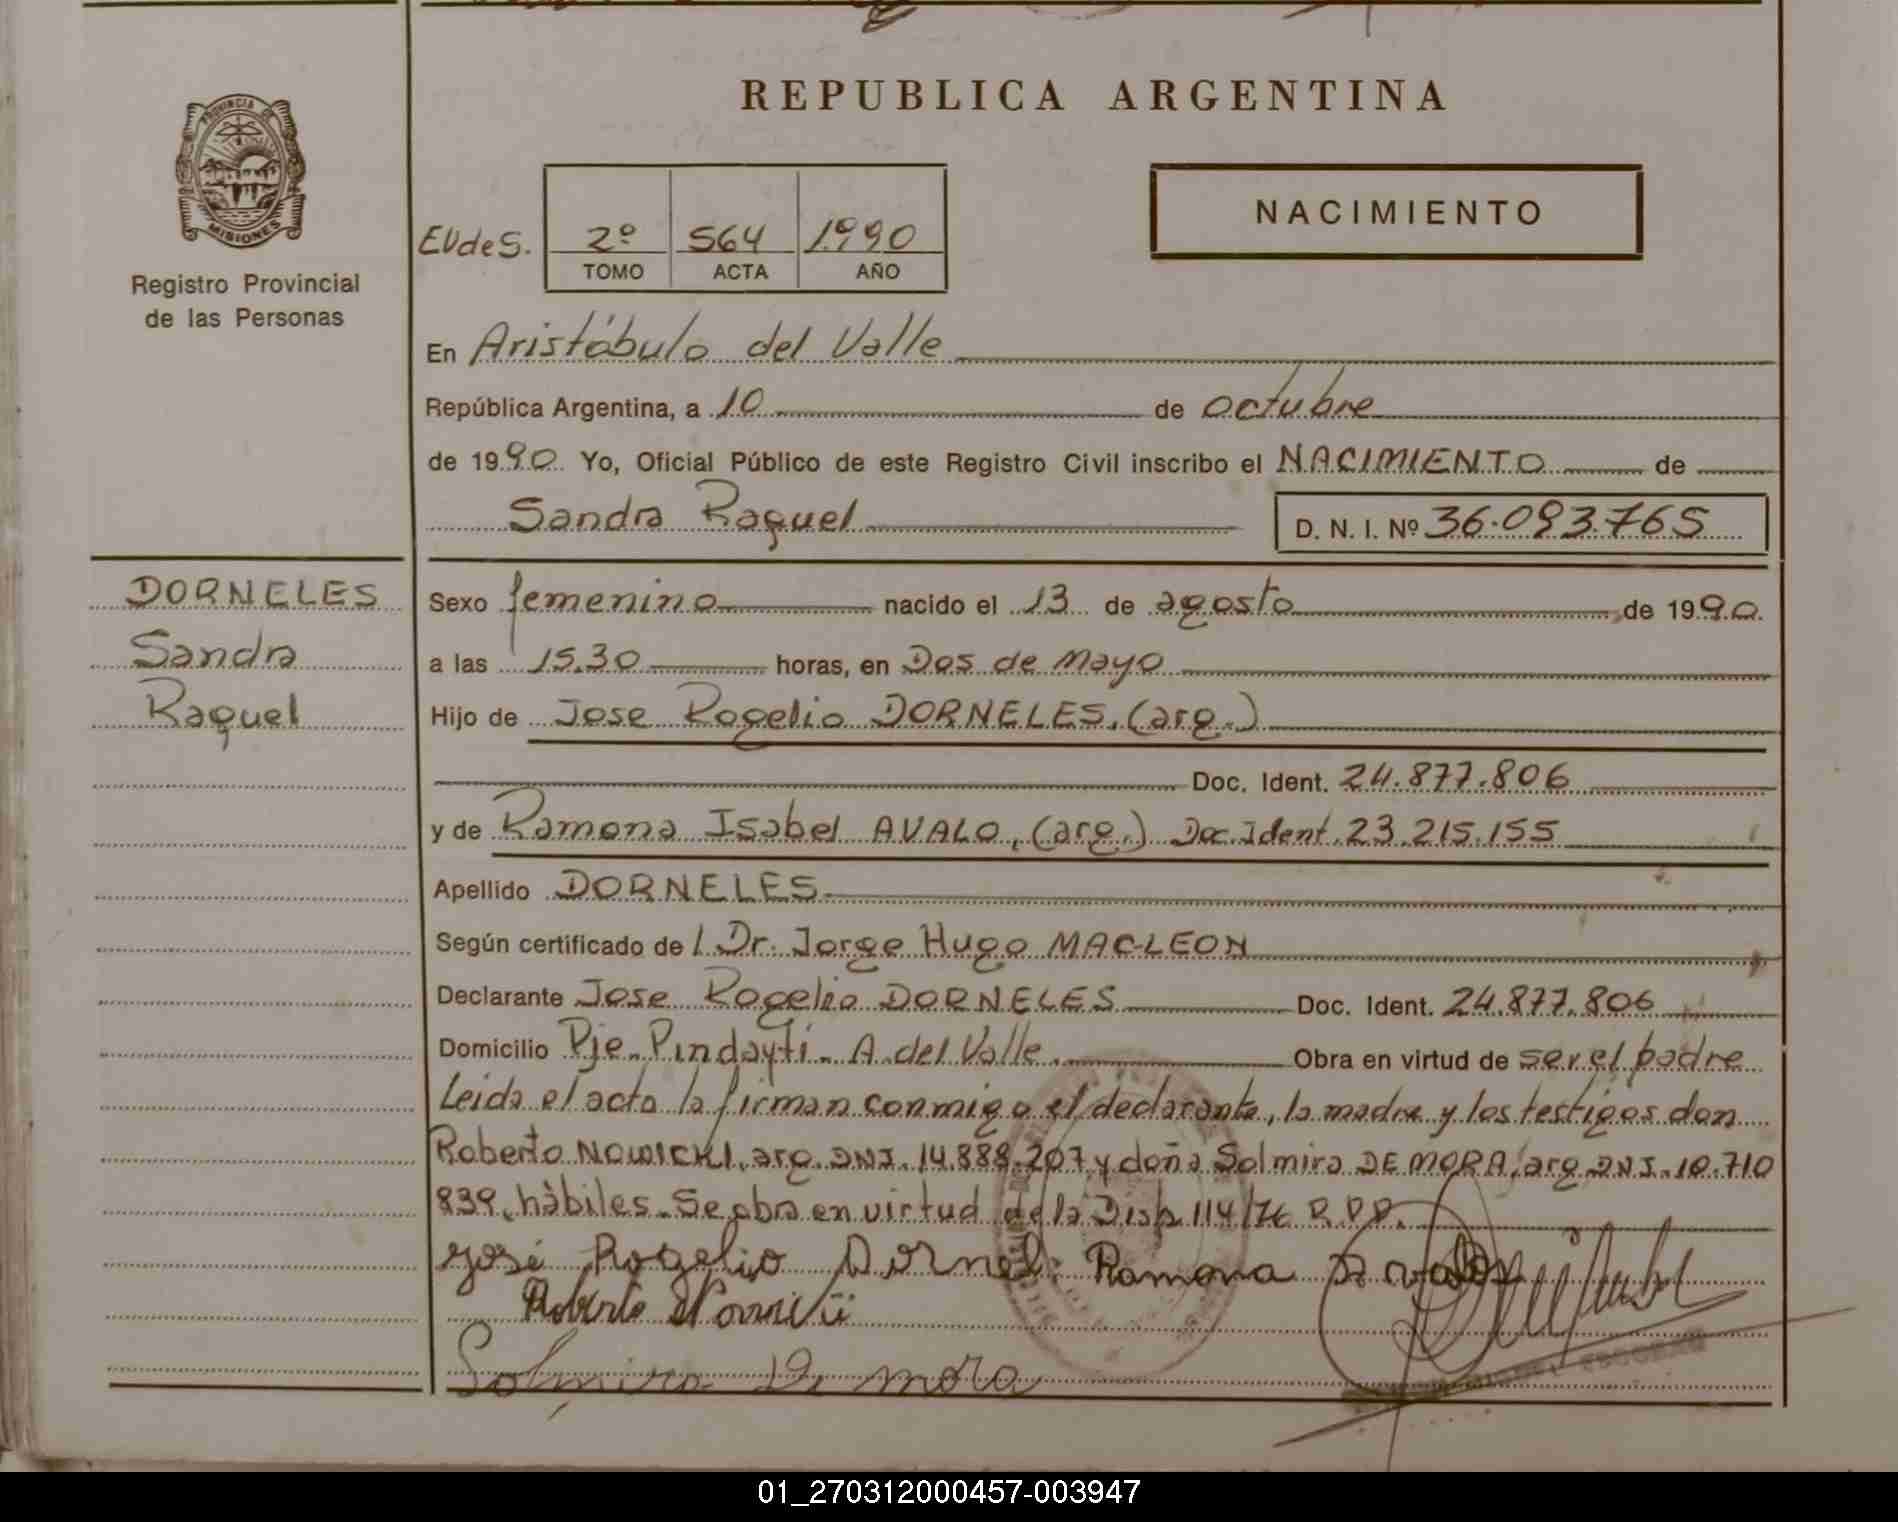 REPUBLICA ARGENTINA
PROVINCIA DE
MISIONES
Registro Provincial
de las Personas
NACIMIENTO
EUdeS.
2º 564 1990
TOMO ACTA AÑO
En Aristóbulo del Valle
República Argentina, a 10 de octubre
de 1990 Yo, Oficial Público de este Registro Civil inscribo el NACIMIENTO de
Sandra Raquel D. N. I. Nº 36.093.765
DORNELES
Sandra
Raquel
Sexo femenino nacido el 13 de agosto de 1990.
a las 15.30 horas, en Dos de Mayo
Hijo de Jose Rogelio DORNELES, (arg.)
Doc. Ident. 24.877.806
y de Ramona Isabel AVALO, (arg.) Doc. Ident. 23.215.155
Apellido DORNELES
Según certificado de / Dr. Jorge Hugo MAC-LEON
Declarante Jose Rogelio DORNELES Doc. Ident. 24.877.806
Domicilio Pje. Pindaytí - A. del Valle. Obra en virtud de ser el padre
Leida el acta la firman conmigo el declarante, la madre y los testigos don
Roberto NOWICKI, arg. DNI. 14.888.207 y doña Solmira DE MORA, arg. DNI. 10.710
839, hàbiles. Se obra en virtud de la Disp. 114/76 R.P.P.
José Rogelio Dorneles Ramona I Avalo
Roberto Nowicki
Solmira De mora
01_270312000457-003947